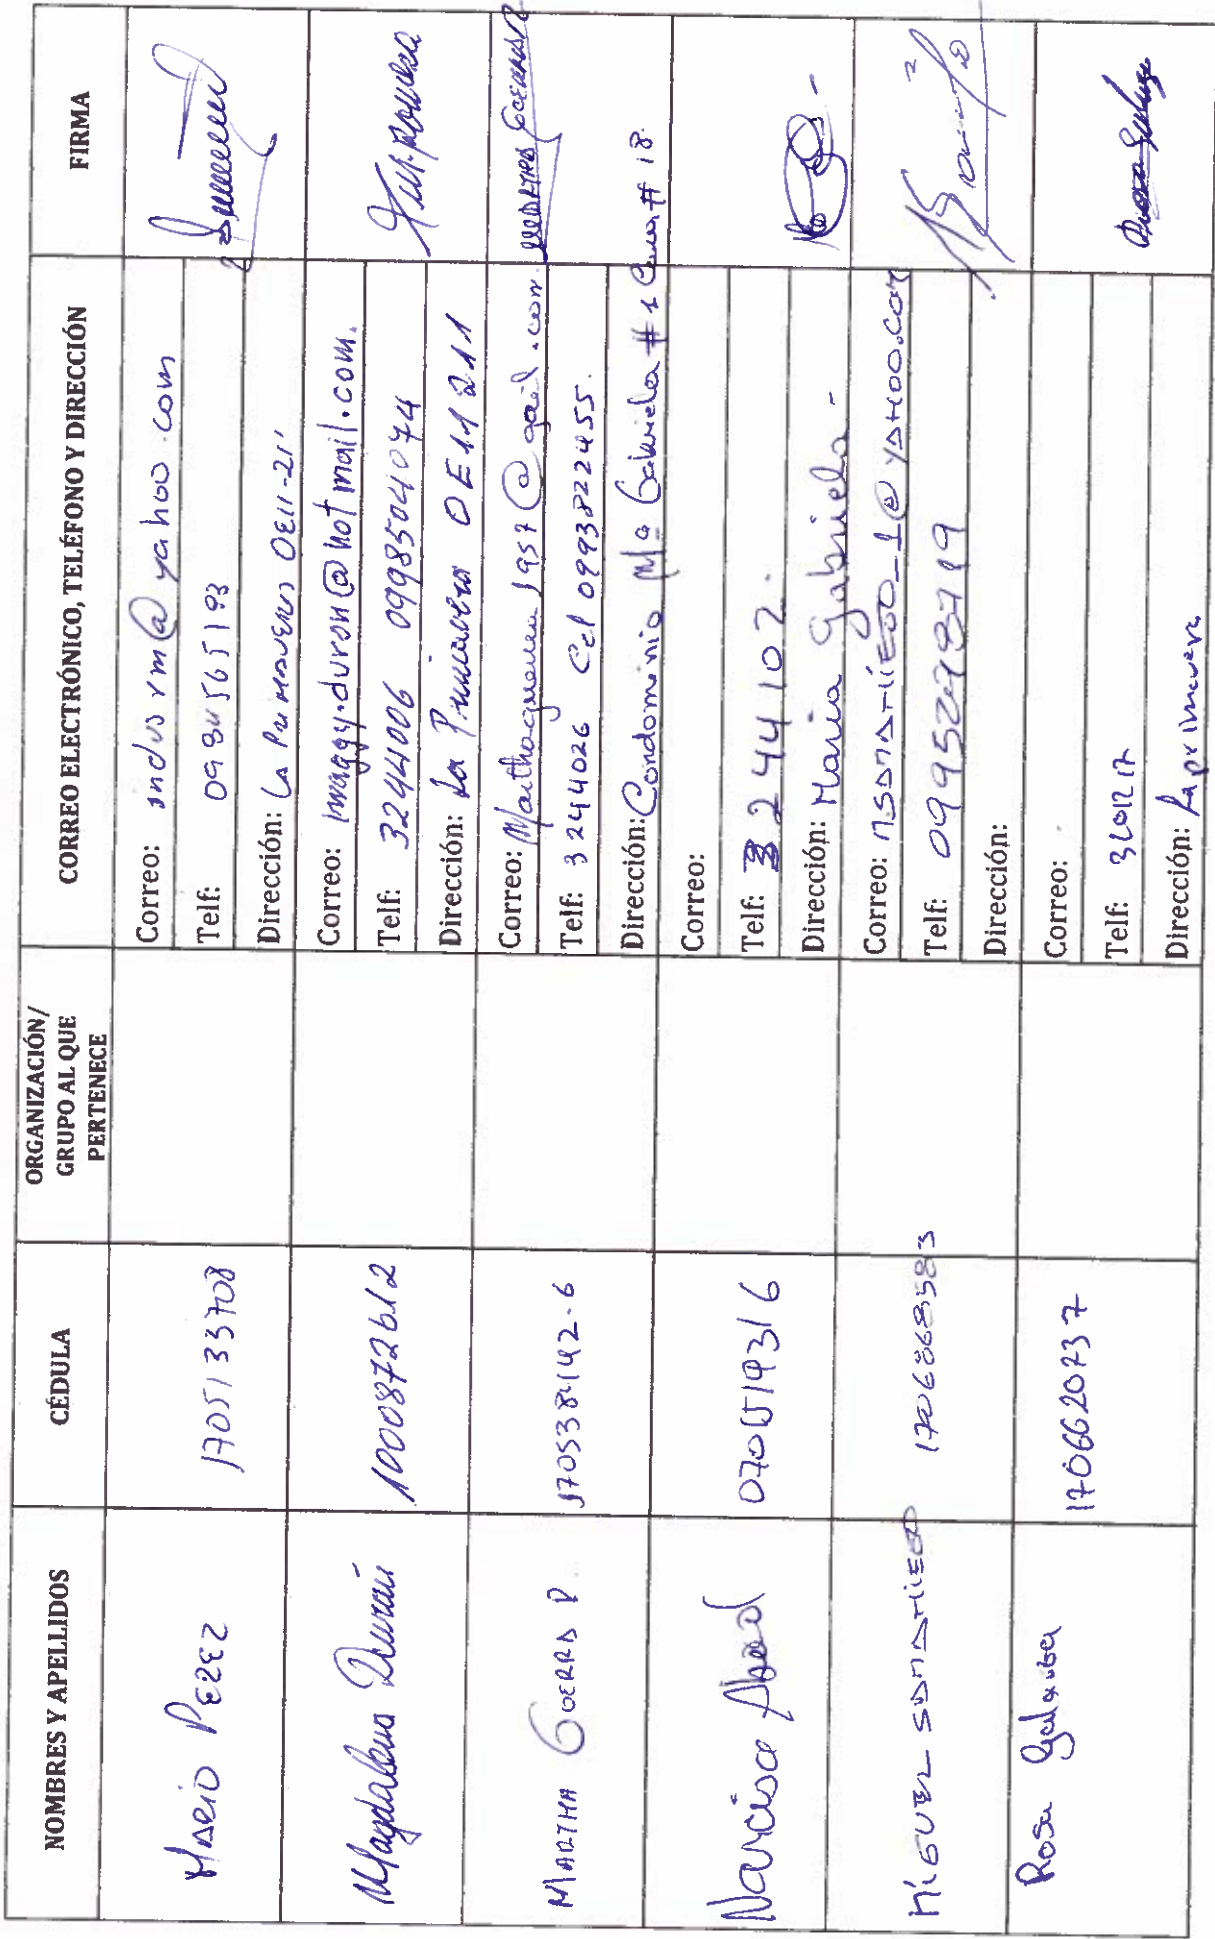 NOMBRES Y APELLIDOS
CÉDULA
ORGANIZACIÓN/
GRUPO AL QUE
PERTENECE
CORREO ELECTRÓNICO, TELÉFONO Y DIRECCIÓN
FIRMA
MARIO PEREZ
1705133708
Correo: indusrm@yahoo.com
Telf: 0984565193
Dirección: La Primavera OE11-21'
Magdalena Durán
1000872612
Correo: maggy.duran@hotmail.com.
Telf: 3244006 0998504074
Dirección: La Primavera OE11211
MARTHA GUERRA P.
170538142-6
Correo: Marthaguerra1957@ .com.
Telf: 3244026 Cel 0993822455.
Dirección: Condominio Ma Gabriela #1 Casa #18.
Narcisa Abad
Correo:
Telf: 3244102.
Dirección: Maria Gabriela -
MIGUEL SAMANIEGO
1706868583
Correo: MSAMANIEGO_1@YAHOO.COM
Telf: 0995278719
Dirección:
Rosa
1706620737
Correo:
Telf:
Dirección: La primavera